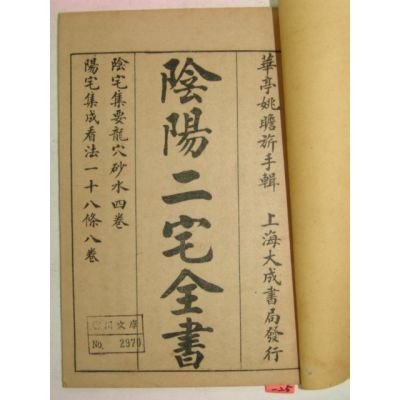 華亭姚瞻旂手輯　上海大成書局發行
陰陽二宅全書
陰宅集要龍穴砂水四卷
陽宅集成看法一十八條八卷
文庫
No. 2970